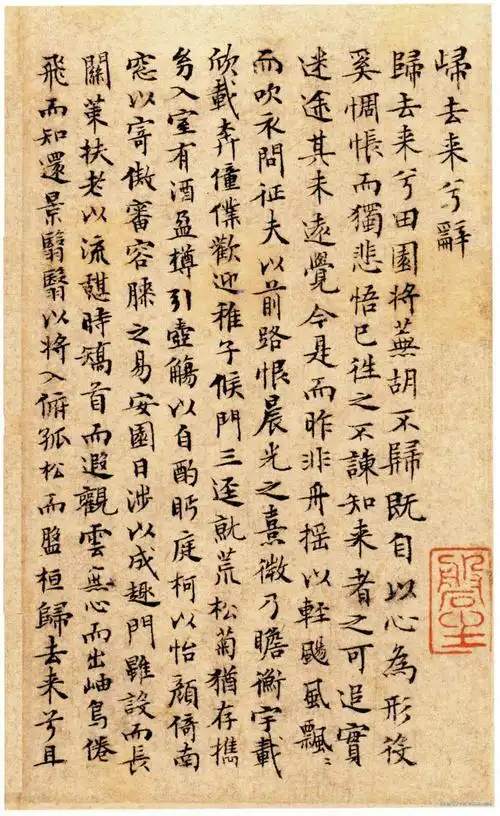 歸去来兮辭
歸去来兮田園将蕪胡不歸既自以心為形役
奚惆悵而獨悲悟已往之不諫知来者之可追實
迷途其未遠覺今是而昨非舟摇以輕颺風飄〻
而吹衣問征夫以前路恨晨光之熹微乃瞻衡宇載
欣載奔僮僕歡迎稚子候門三逕就荒松菊猶存攜
幼入室有酒盈樽引壺觴以自酌眄庭柯以怡顏倚南
窓以寄傲審容膝之易安園日涉以成趣門雖設而長
關策扶老以流憇時矯首而遐觀雲無心而出岫鳥倦
飛而知還景翳翳以将入俯孤松而盤桓歸去来兮且